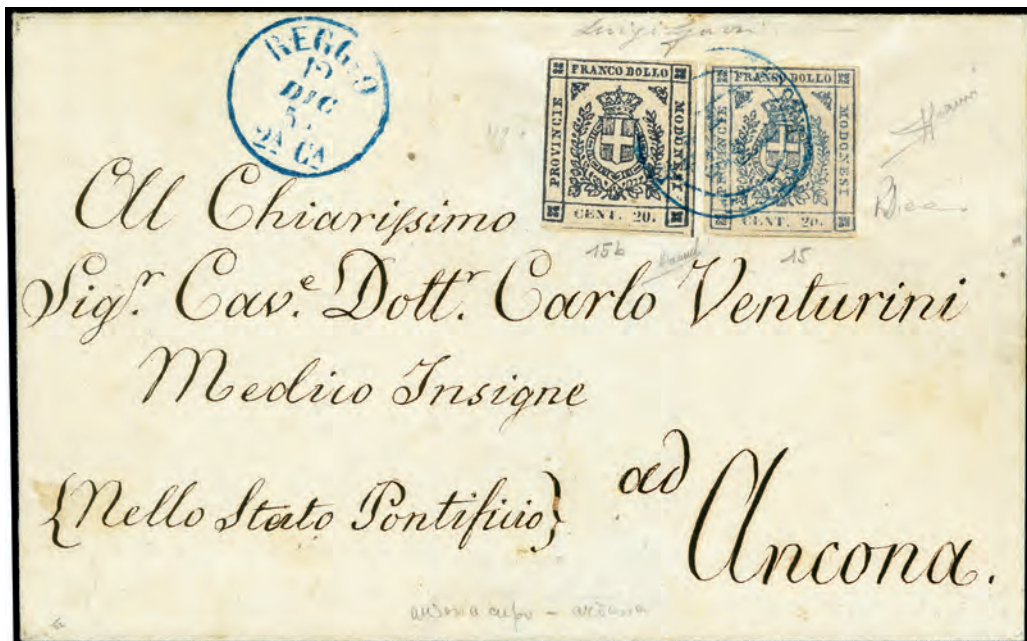 REGGIO
DIC
FRANCO BOLLO
PROVINCIE
MODONESI
CENT. 20.
FRANCO BOLLO
PROVINCIE
MODONESI
CENT. 20.
15b
15
All Chiarissimo
Sigr. Cave. Dottr. Carlo Venturini
Medico Insigne
{Nello Stato Pontificio} ad Ancona.